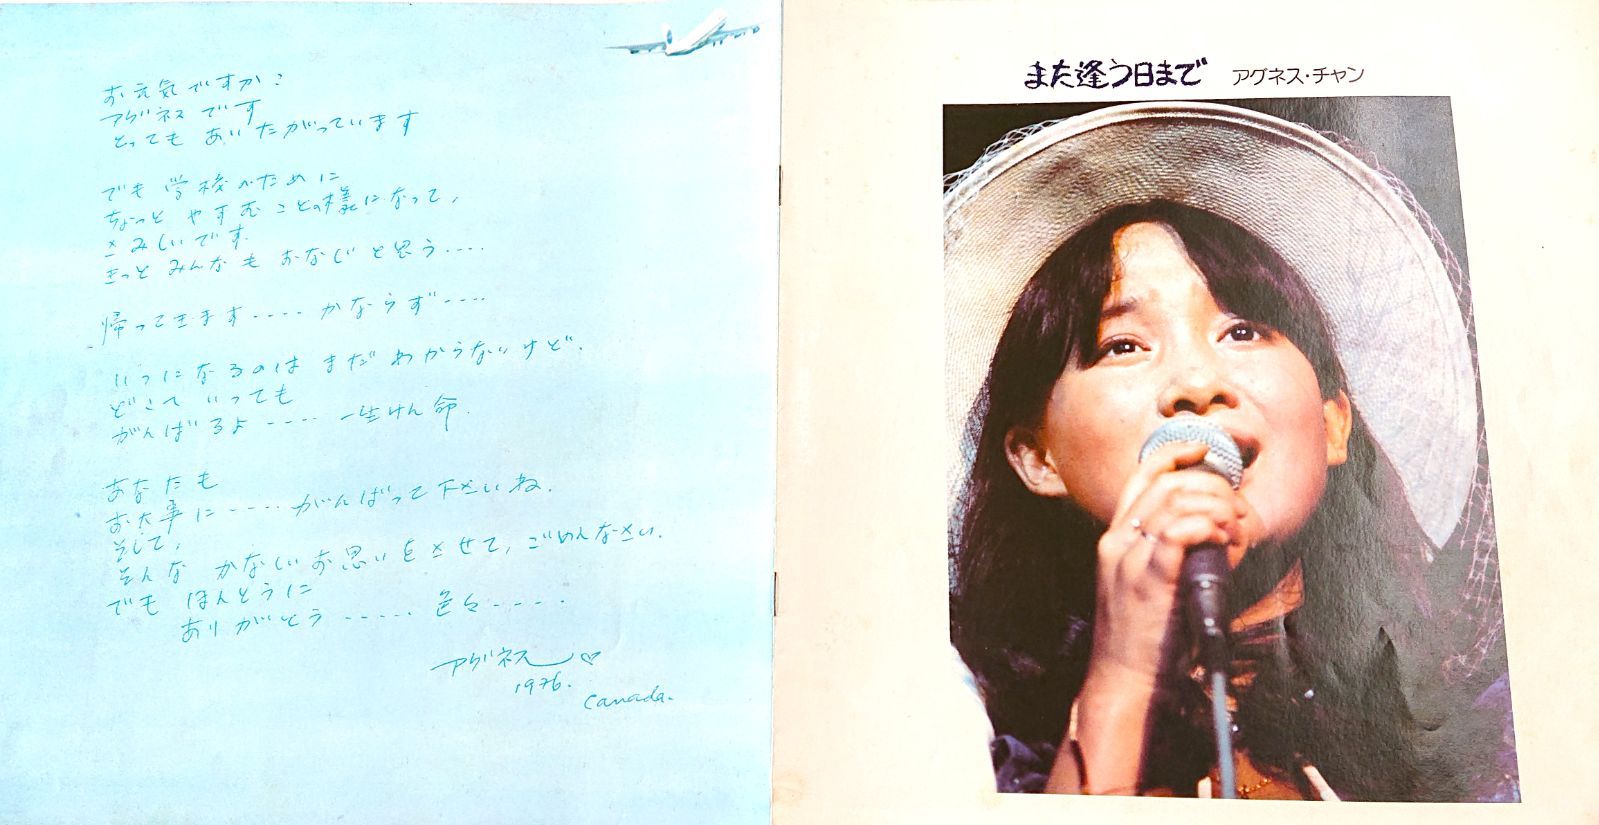 お元気ですか?
アグネスです
とっても あいたがっています
でも 学校のために
ちょっと やすむ ことの様になって、
さみしいです.
きっと みんなも おなじと思う....
帰ってきます.... かならず....
いつになるのは まだ わからないけど.
どこて いっても
がんばるよ.... 一生けん命.
あなたも
お大事に.... がんばって下さいね.
そして,
そんな かなしいお思いをさせて, ごめんなさい.
でも ほんとうに
ありがとう..... 色々....
アグネス♡
1976.
Canada.
また逢う日まで アグネス・チャン